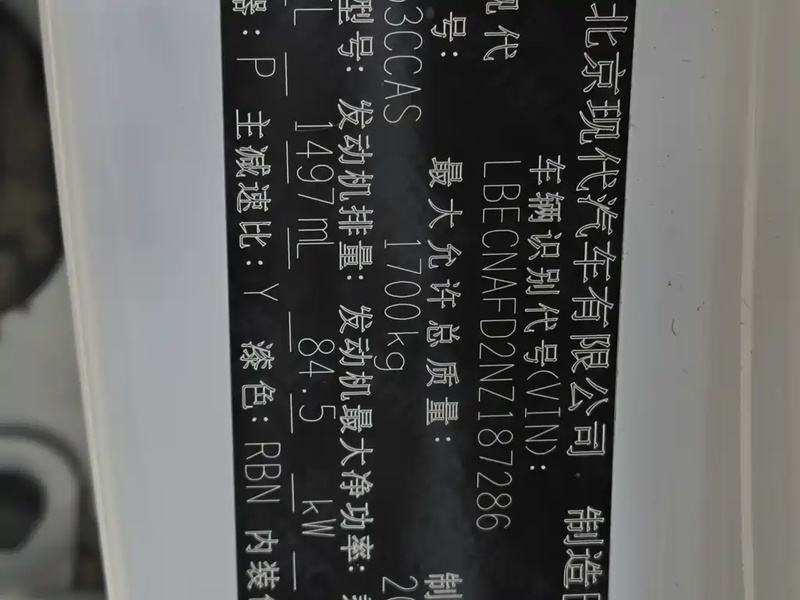 北京现代汽车有限公司 制造
现代 车辆识别代号(VIN):
LBECNAFD2NZ187286
号: 最大允许总质量: 制
3CCAS 1700kg 20
型号: 发动机排量: 发动机最大净功率:
L 1497mL 84.5 kW
器: P 主减速比: Y 漆色: RBN 内装